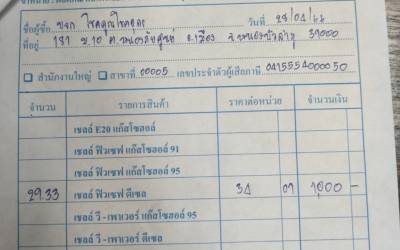 ชื่อผู้ซื้อ หจก โชคคูณโชคอุดร วันที่ 28/04/66
ที่อยู่ 181 ม.10 ต. อ.เมือง จ.หนองบัวลำภู 39000
สำนักงานใหญ่ สาขาที่ 00005 เลขประจำตัวผู้เสียภาษี 0415554000050
จำนวน รายการสินค้า ราคาต่อหน่วย จำนวนเงิน
เชลล์ E20 แก๊สโซฮอล์
เชลล์ ฟิวเซฟ แก๊สโซฮอล์ 91
เชลล์ ฟิวเซฟ แก๊สโซฮอล์ 95
29.33 เชลล์ ฟิวเซฟ ดีเซล 34 09 1,000 -
เชลล์ วี - เพาเวอร์ แก๊สโซฮอล์ 95
เชลล์ วี - เพาเวอร์ ดีเซล